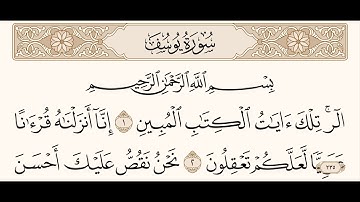 سُورَةُ يُوسُفَ
بِسْمِ ٱللَّهِ ٱلرَّحْمَٰنِ ٱلرَّحِيمِ
الٓر ۚ تِلْكَ ءَايَٰتُ ٱلْكِتَٰبِ ٱلْمُبِينِ ١ إِنَّآ أَنزَلْنَٰهُ قُرْءَٰنًا
لَّعَلَّكُمْ تَعْقِلُونَ ٢ نَحْنُ نَقُصُّ عَلَيْكَ أَحْسَنَ
٢٣٥